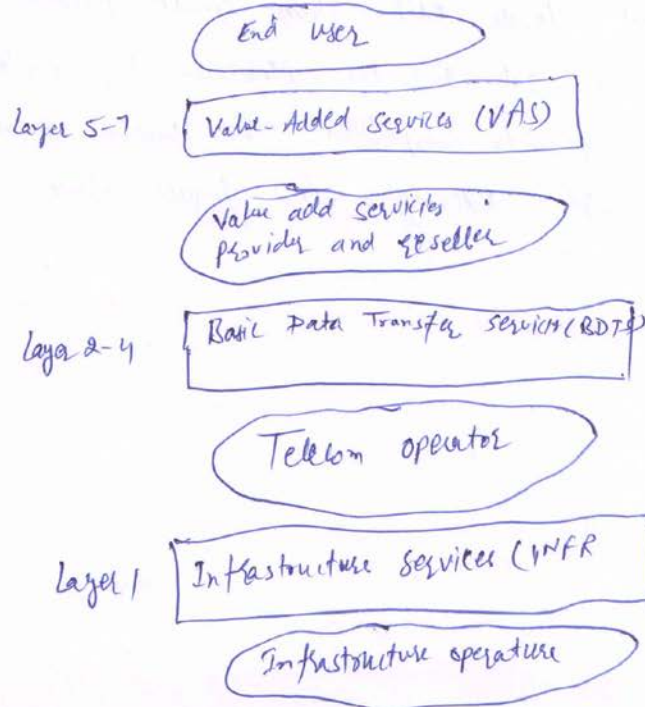 End user
Layer 5-7
Value-Added Services (VAS)
Value add services
provider and reseller
Layer 2-4
Basic Data Transfer services (BDTS)
Telecom operator
Layer 1
Infrastructure services (INFR
Infrastructure operature